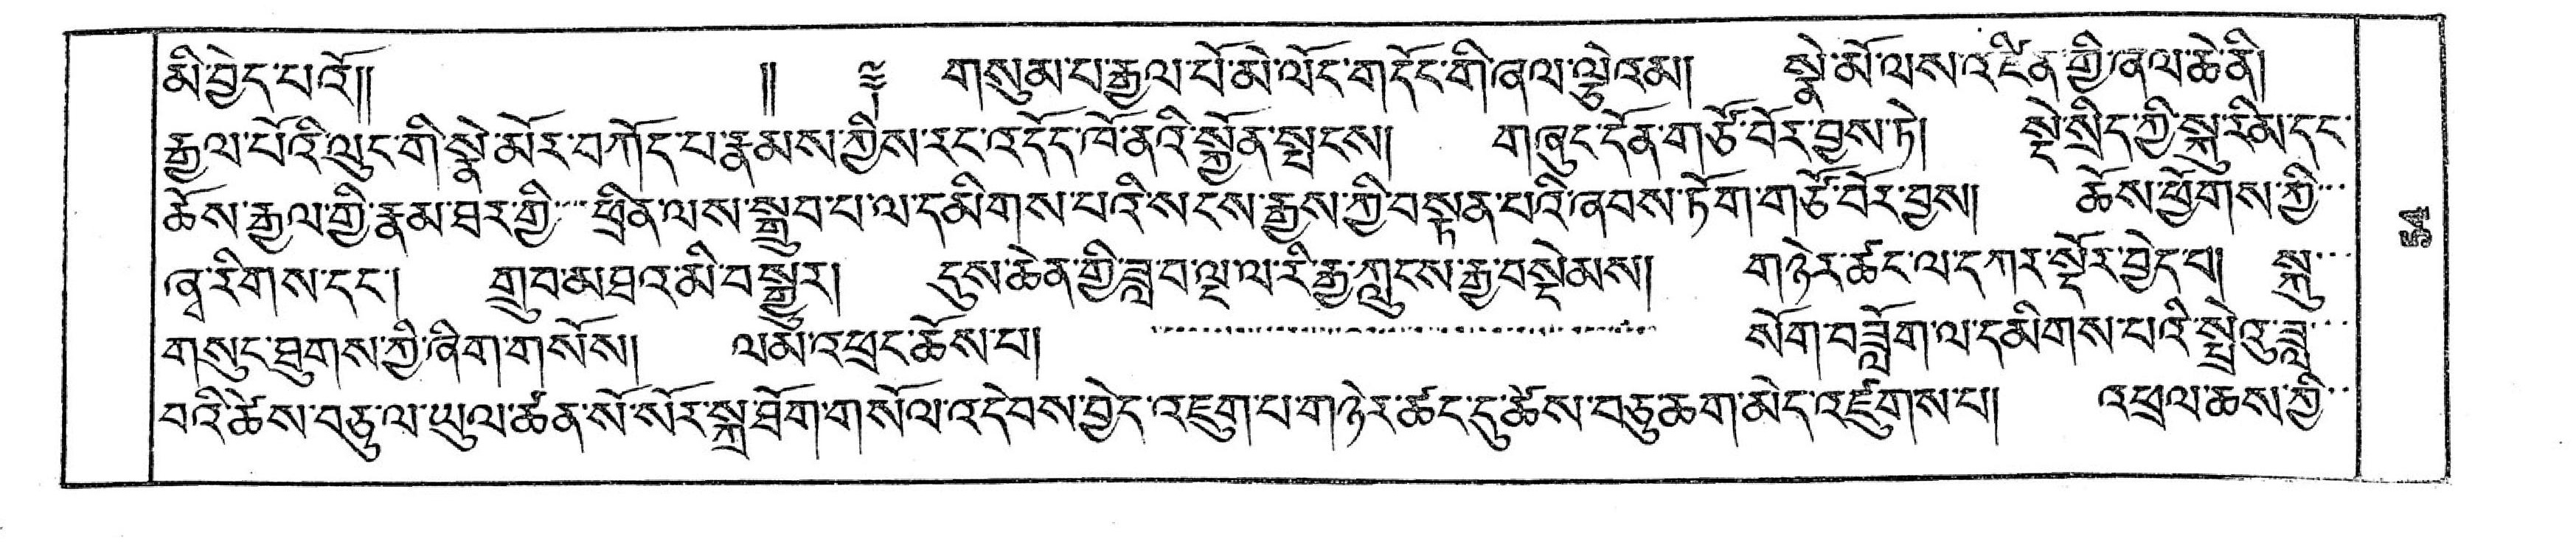 མི་བྱེད་པའོ།། ༎ ༈ གསུམ་པ་རྒྱལ་པོ་མེ་ལོང་གདོང་གི་ཞལ་ལྕེ་འམ། སྣེ་མོ་ལས་འཛིན་གྱི་ཞལ་ཆེ་ནི།
རྒྱལ་པོའི་ལུང་གི་སྣེ་མོར་བཀོད་པ་རྣམས་ཀྱིས་རང་འདོད་ཁོ་ནའི་སྐྱོན་སྤངས། གཞུང་དོན་གཙོ་བོར་བྱས་ཏེ། སྡེ་སྲིད་ཀྱི་སྐུ་རིམ་དང་
ཆོས་རྒྱལ་གྱི་རྣམ་ཐར་གྱི་ཕྲིན་ལས་སྒྲུབ་པ་ལ་དམིགས་པའི་སངས་རྒྱས་ཀྱི་བསྟན་པའི་ཞབས་ཏོག་གཙོ་བོར་བྱས། ཆོས་ཕྱོགས་ཀྱི་
ཞྭ་རིགས་དང༌། གྲུབ་མཐའ་མི་བསྒྱུར། དུས་ཆེན་གྱི་ཟླ་བ་ལྔ་ལ་རི་རྒྱ་ཀླུངས་རྒྱ་བསྡེམས། གཉེར་ཚང་ལ་དཀར་སྡོར་བྱེད་པ། སྐུ་
གསུང་ཐུགས་ཀྱི་ཞིག་གསོས། ལམ་འཕྲང་ཆོས་པ། སོག་བཟློག་ལ་དམིགས་པའི་སྤྲེའུ་ཟླ་
བའི་ཚེས་བཅུ་ལ་ཡུལ་ཚན་སོ་སོར་སྐྲ་ཐོག་གསོལ་འདེབས་བྱེད་འཇུག་པ་གཉེར་ཚང་དུ་ཚེས་བཅུ་ཆག་མེད་འཛུགས་པ། འཕྲལ་ཆས་ཀྱི་